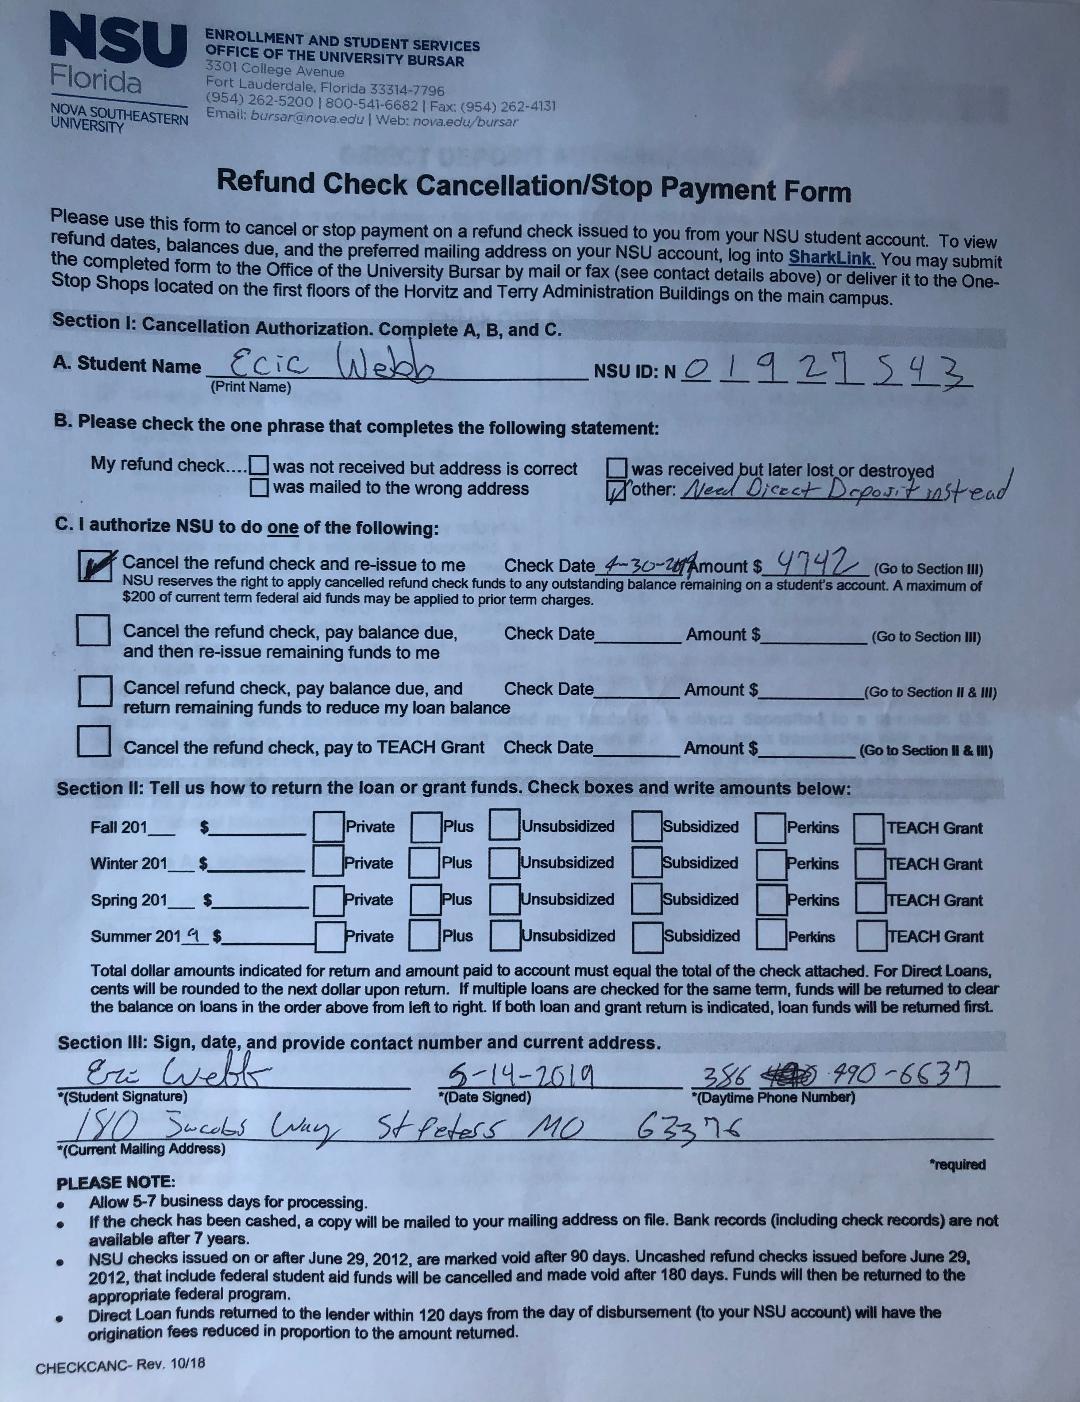 NSU
Florida
NOVA SOUTHEASTERN
UNIVERSITY
ENROLLMENT AND STUDENT SERVICES
OFFICE OF THE UNIVERSITY BURSAR
3301 College Avenue
Fort Lauderdale, Florida 33314-7796
(954) 262-5200 | 800-541-6682 | Fax: (954) 262-4131
Email: bursar@nova.edu | Web: nova.edu/bursar
Refund Check Cancellation/Stop Payment Form
Please use this form to cancel or stop payment on a refund check issued to you from your NSU student account. To view
refund dates, balances due, and the preferred mailing address on your NSU account, log into SharkLink. You may submit
the completed form to the Office of the University Bursar by mail or fax (see contact details above) or deliver it to the One-
Stop Shops located on the first floors of the Horvitz and Terry Administration Buildings on the main campus.
Section I: Cancellation Authorization. Complete A, B, and C.
A. Student Name Eric Webb NSU ID: N 0 1 9 2 7 5 4 3
(Print Name)
B. Please check the one phrase that completes the following statement:
My refund check.... was not received but address is correct was received but later lost or destroyed
was mailed to the wrong address other: Need Direct Deposit instead
C. I authorize NSU to do one of the following:
Cancel the refund check and re-issue to me Check Date 4-30-2019 Amount $ 4742 (Go to Section III)
NSU reserves the right to apply cancelled refund check funds to any outstanding balance remaining on a student's account. A maximum of
$200 of current term federal aid funds may be applied to prior term charges.
Cancel the refund check, pay balance due, Check Date Amount $ (Go to Section III)
and then re-issue remaining funds to me
Cancel refund check, pay balance due, and Check Date Amount $ (Go to Section II & III)
return remaining funds to reduce my loan balance
Cancel the refund check, pay to TEACH Grant Check Date Amount $ (Go to Section II & III)
Section II: Tell us how to return the loan or grant funds. Check boxes and write amounts below:
Fall 201 $ Private Plus Unsubsidized Subsidized Perkins TEACH Grant
Winter 201 $ Private Plus Unsubsidized Subsidized Perkins TEACH Grant
Spring 201 $ Private Plus Unsubsidized Subsidized Perkins TEACH Grant
Summer 2019 $ Private Plus Unsubsidized Subsidized Perkins TEACH Grant
Total dollar amounts indicated for return and amount paid to account must equal the total of the check attached. For Direct Loans,
cents will be rounded to the next dollar upon return. If multiple loans are checked for the same term, funds will be returned to clear
the balance on loans in the order above from left to right. If both loan and grant return is indicated, loan funds will be returned first.
Section III: Sign, date, and provide contact number and current address.
Eric Webb 5-14-2019 386 490-6637
*(Student Signature) *(Date Signed) *(Daytime Phone Number)
180 Jacobs Way St Peters MO 63376
*(Current Mailing Address)
*required
PLEASE NOTE:
• Allow 5-7 business days for processing.
• If the check has been cashed, a copy will be mailed to your mailing address on file. Bank records (including check records) are not
available after 7 years.
• NSU checks issued on or after June 29, 2012, are marked void after 90 days. Uncashed refund checks issued before June 29,
2012, that include federal student aid funds will be cancelled and made void after 180 days. Funds will then be returned to the
appropriate federal program.
• Direct Loan funds returned to the lender within 120 days from the day of disbursement (to your NSU account) will have the
origination fees reduced in proportion to the amount returned.
CHECKCANC- Rev. 10/18